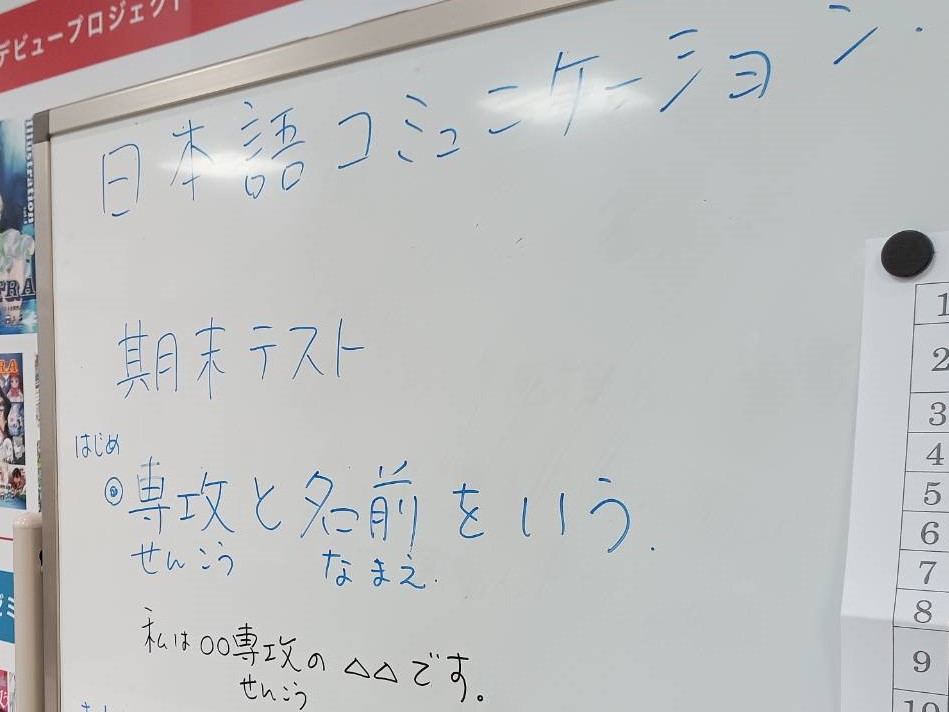 デビュープロジェクト
日本語コミュニケーション.
Illustration
TRA
期末テスト
はじめ
◎専攻と名前をいう.
せんこう なまえ.
私は○○専攻の△△です。
せんこう
1
2
3
4
5
6
7
8
9
10